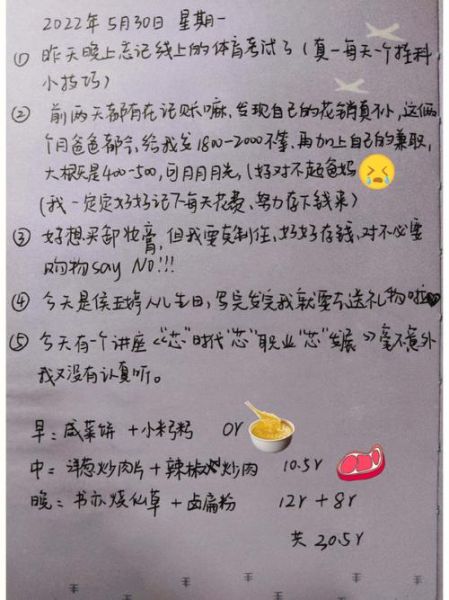 2022年5月30日 星期一
① 昨天晚上忘记线上的体育考试了(真一每天一个挂科
小技巧)
② 前两天都有在记账嘛,发现自己的花销真不小,这俩
个月爸爸都会给我发1800-2000不等,再加上自己的兼职,
大概是400-500,可月月光,(好对不起爸妈
(我一定定好好记下每天花费、努力存下钱来)
③ 好想买卸妆膏,但我要克制住,好好存钱,对不必要
购物say NO!!!
④ 今天是侯玉婷人儿生日,写完发完我就要去送礼物啦
⑤ 今天有个讲座《"芯"时代"芯"职业"芯"发展》毫不意外
我又没有认真听。
早:咸菜饼+小米粥 0r
中:洋葱炒肉片+辣椒炒肉 10.5r
晚:书亦烧仙草+卤扁粉 12r+8r
共30.5r